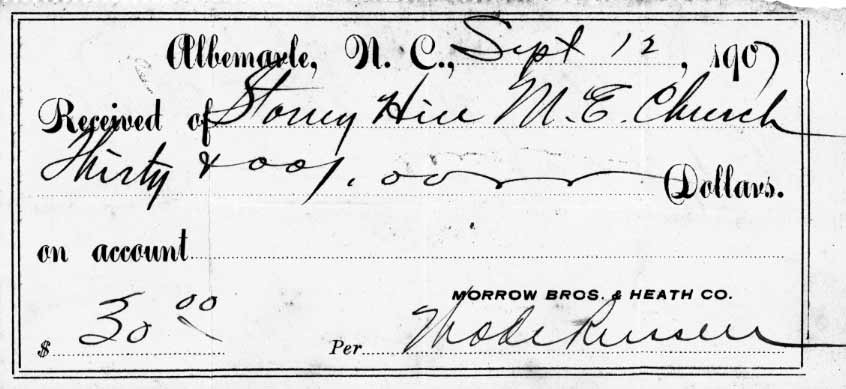 Albemarle, N. C., Sept 12, 1907
Received of Stoney Hill M. E. Church
Thirty & 00/.00 Dollars.
on account
MORROW BROS. & HEATH CO.
$ 30 00 Per